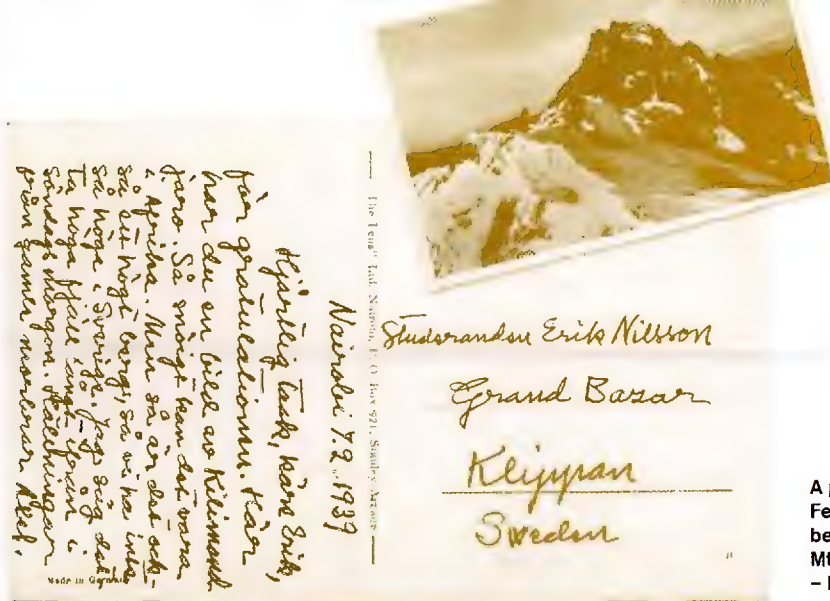 Nairobi 7.2.1939
Hjärtlig tack, käre Erik,
för gratulationen. Här
har du en bild av Kilimand
jaro. Så snöigt kan det vara
i Afrika. Men så är det ock-
så ett högt berg, så vi ha inte
så höga i Sverige. Jag såg det-
ta höga fjäll långt ifrån i
söndags morgon. Hälsningar
från gamle morbror
Ltd. Nairobi, P.O. Box 921, Stanley
Made in
Studeranden Erik Nilsson
Grand Bazar
Klippan
Sweden
A
Fe
be
Mt
–